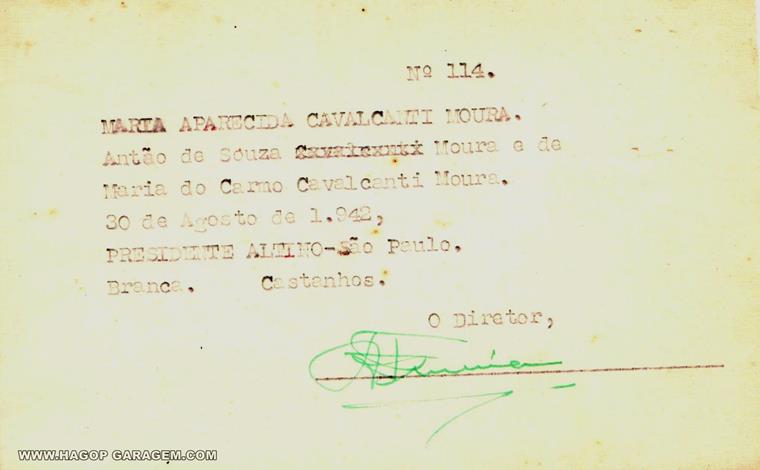 Nº 114.
MARIA APARECIDA CAVALCANTI MOURA.
Antão de Souza Cavalcanti Moura e de
Maria do Carmo Cavalcanti Moura.
30 de Agosto de 1.942,
PRESIDENTE ALTINO-São Paulo.
Branca. Castanhos.
O Diretor,
WWW.HAGOP GARAGEM.COM